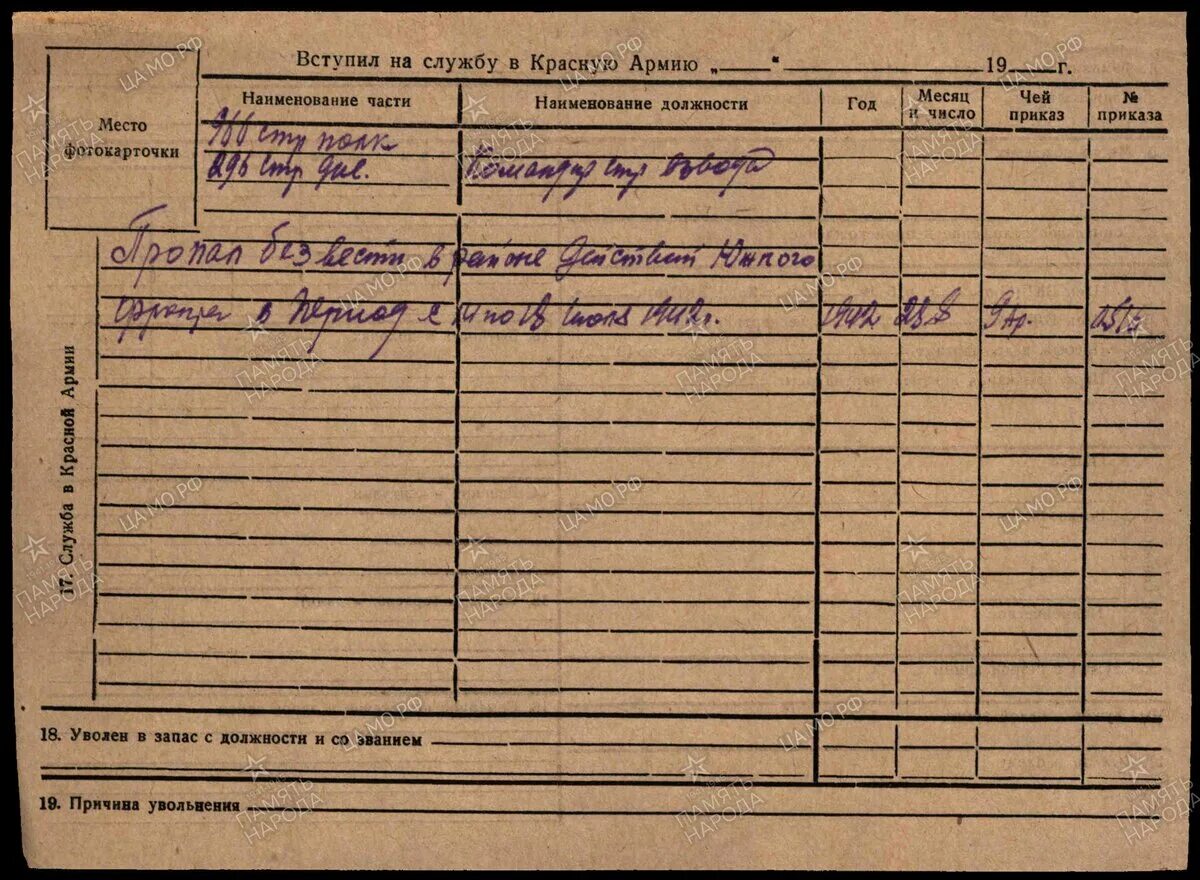 Вступил на службу в Красную Армию „ “ 19 г.
Место
фотокарточки
Наименование части
Наименование должности
Год
Месяц
и число
Чей
приказ
№
приказа
966 стр полк
296 стр див.
Командир стр взвода
Пропал без вести в районе действий Южного
фронта в период с по 18 июля 1942г.
1942
17. Служба в Красной Армии
18. Уволен в запас с должности и со званием
19. Причина увольнения
ЦА МО РФ
ПАМЯТЬ
НАРОДА